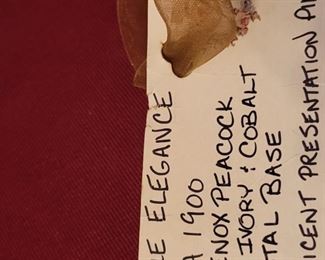 E ELEGANCE
A 1900
NOX PEACOCK
IVORY + COBALT
TAL BASE
ICENT PRESENTATION PI